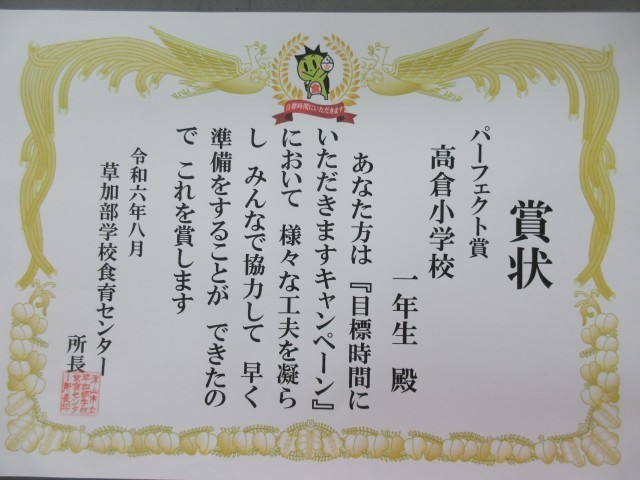 目標時間にいただきます
賞状
パーフェクト賞
高倉小学校
一年生 殿
あなた方は『目標時間に
いただきますキャンペーン』
において 様々な工夫を凝ら
し みんなで協力して 早く
準備をすることが できたの
で これを賞します
令和六年八月
草加部学校食育センター
所長
津山市立
草加部学校
食育センタ
ー所長印